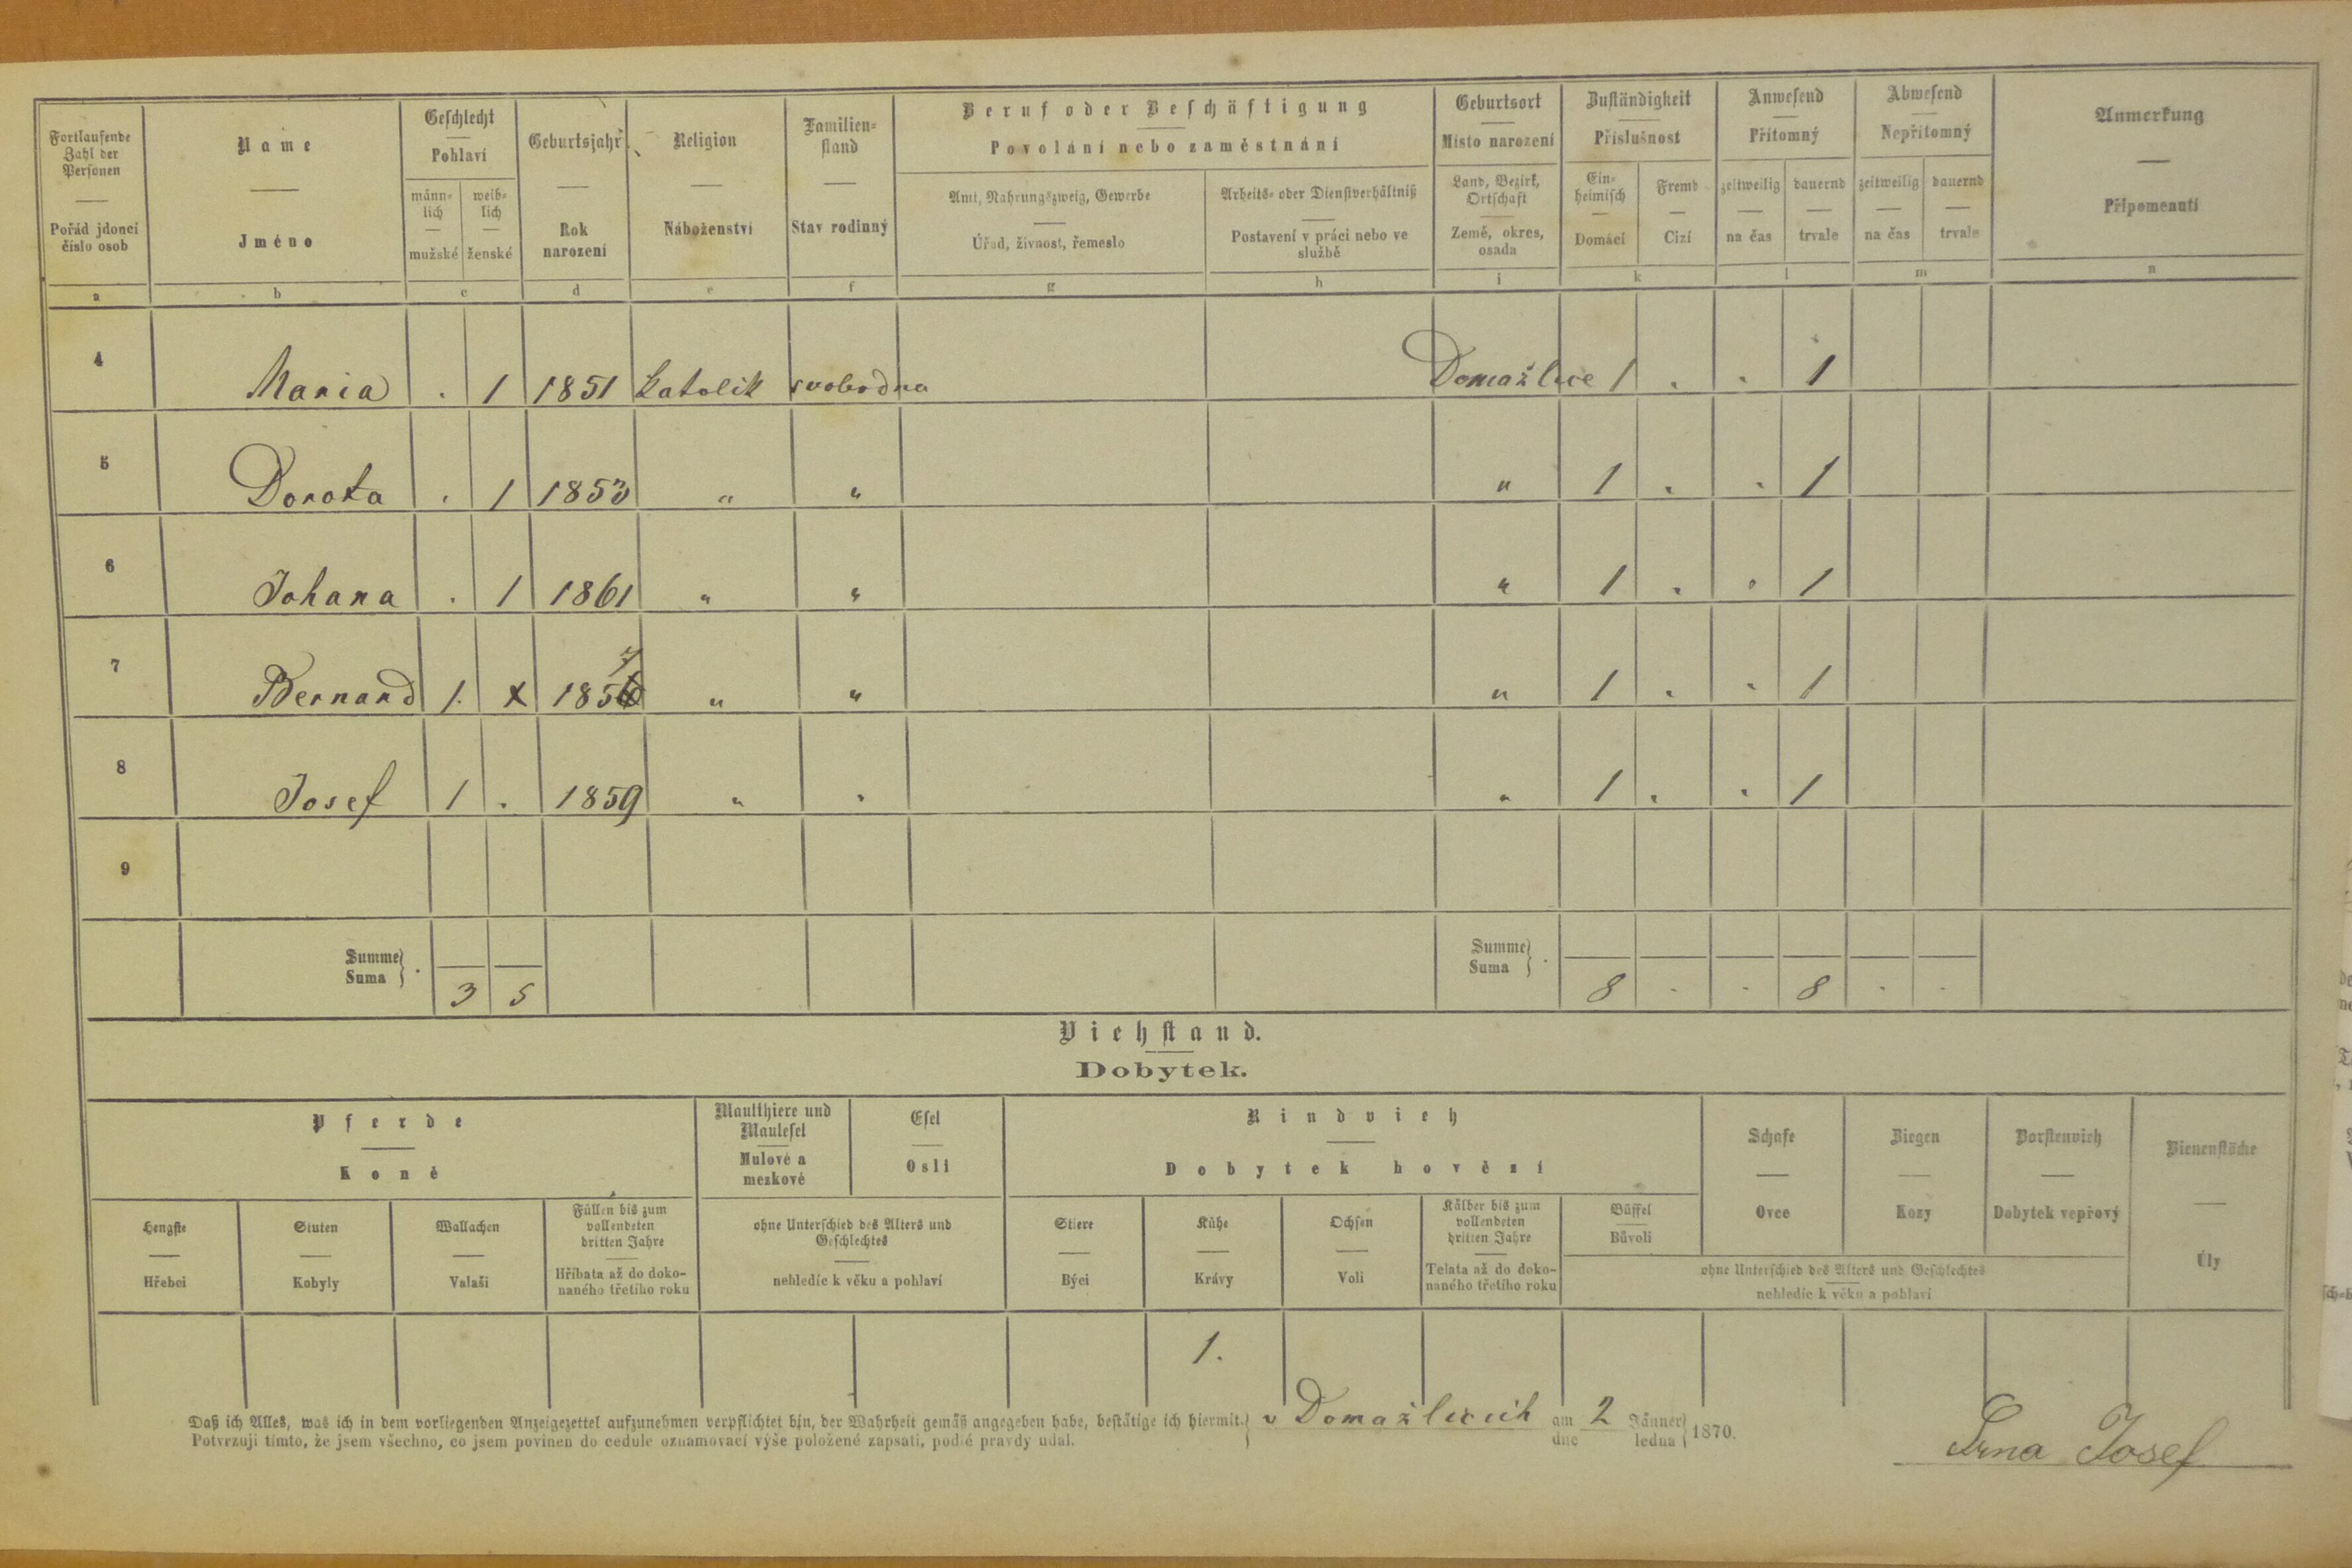 Fortlaufende Zahl der Personen
Pořád jdoucí číslo osob
Name
Jméno
Geschlecht
Pohlaví
männ-lich
mužské
weib-lich
ženské
Geburtsjahr
Rok narození
Religion
Náboženství
Familien-stand
Stav rodinný
Beruf oder Beschäftigung
Povolání nebo zaměstnání
Amt, Nahrungszweig, Gewerbe
Úřad, živnost, řemeslo
Arbeits- oder Dienstverhältniß
Postavení v práci nebo ve službě
Geburtsort
Místo narození
Land, Bezirk, Ortschaft
Země, okres, osada
Zuständigkeit
Příslušnost
Ein-heimisch
Domácí
Fremd
Cizí
Anwesend
Přítomný
zeitweilig
na čas
dauernd
trvale
Abwesend
Nepřítomný
zeitweilig
na čas
dauernd
trvale
Anmerkung
Připomenutí
a b c d e f g h i k l m n
4 Maria . 1 1851 katolik svobodna Domažlice 1 . . 1
5 Dorota . 1 1853 " " " 1 . . 1
6 Johana . 1 1861 " " " 1 . . 1
7 Bernard 1. x 185 7 " " " 1 . . 1
8 Josef 1 . 1859 " " " 1 . . 1
9
Summe Suma } . 3 5 Summe Suma } . 8 - - 8 - -
Viehstand.
Dobytek.
Pferde
Koně
Hengste
Hřebci
Stuten
Kobyly
Wallachen
Valaši
Füllen bis zum vollendeten dritten Jahre
Hříbata až do doko-naného třetího roku
Maulthiere und Maulesel
Mulové a mezkové
Esel
Osli
ohne Unterschied des Alters und Geschlechtes
nehledíc k věku a pohlaví
Rindvieh
Dobytek hovězí
Stiere
Býci
Kühe
Krávy
Ochsen
Voli
Kälber bis zum vollendeten dritten Jahre
Telata až do doko-naného třetího roku
Büffel
Bůvoli
Schafe
Ovce
Ziegen
Kozy
Borstenvieh
Dobytek vepřový
ohne Unterschied des Alters und Geschlechtes
nehledíc k věku a pohlaví
Bienenstöcke
Úly
1.
Daß ich Alles, was ich in dem vorliegenden Anzeigezettel aufzunehmen verpflichtet bin, der Wahrheit gemäß angegeben habe, bestätige ich hiermit.
Potvrzuji tímto, že jsem všechno, co jsem povinen do cedule oznamovací výše položené zapsati, podlé pravdy udal.
v Domažlicích am dne 2 Jänner ledna 1870.
Josef